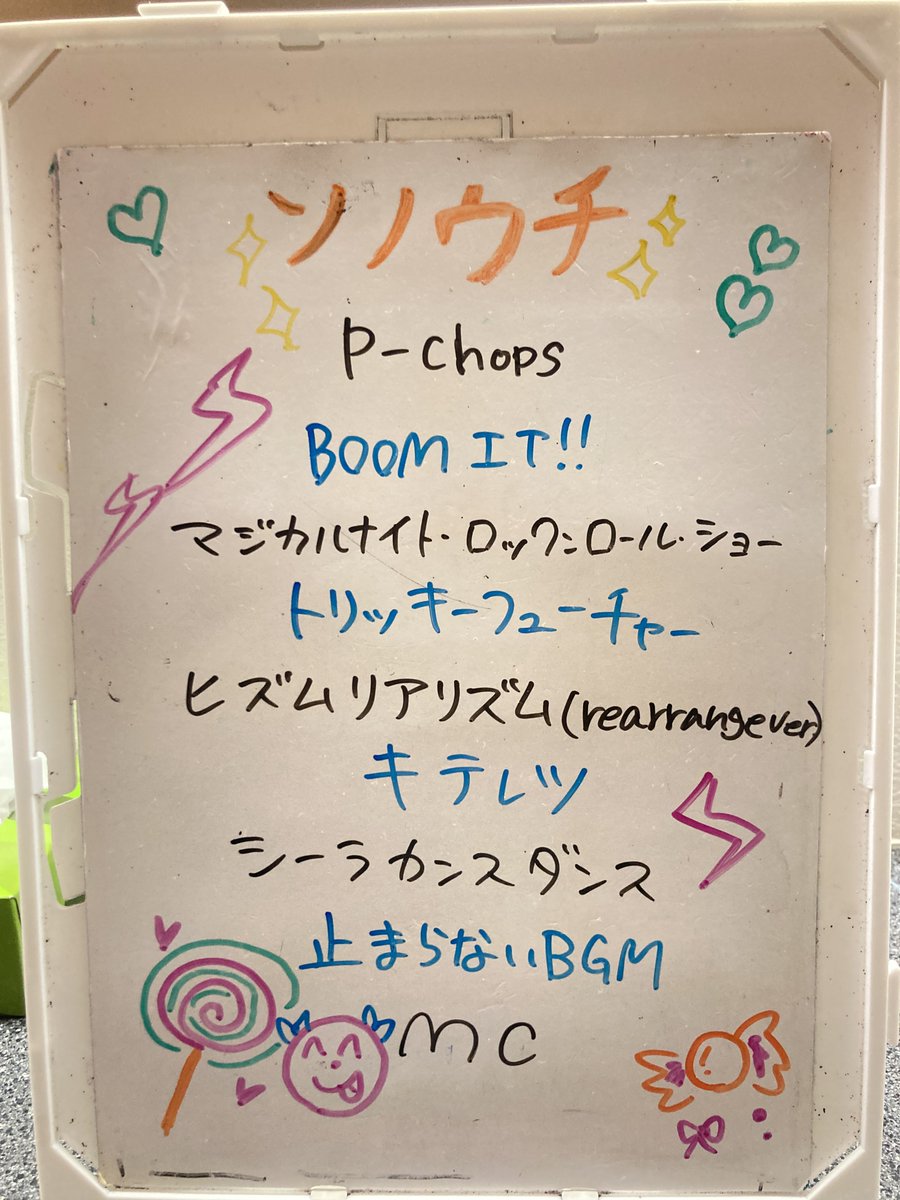 ソノウチ
P-chops
BOOM IT!!
マジカルナイト・ロックンロール・ショー
トリッキーフューチャー
ヒズムリアリズム(rearrange ver)
キテレツ
シーラカンスダンス
止まらないBGM
mc